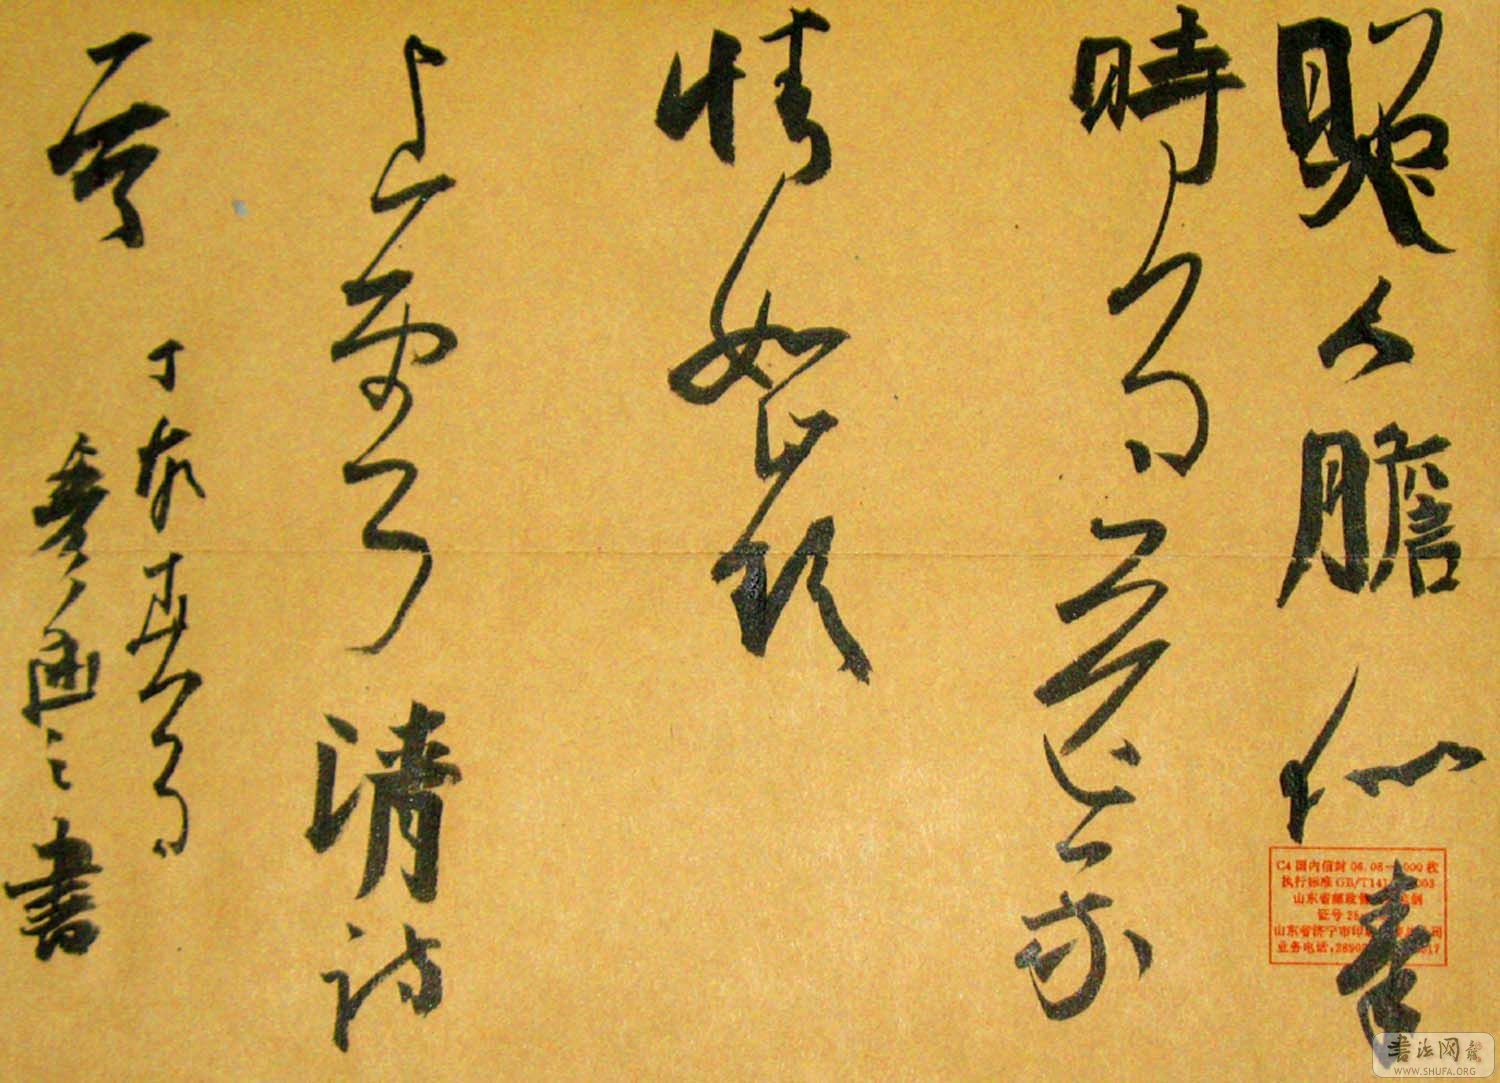 照人膽似秦
時月送我
情如嶺
上雲 清詩
一
丁亥春月
之書
C4 国内信封 06.08 000枚
执行标准 GB/T14 003
山东省邮政 制
证号
山东省济宁市印 司
业务电话: 017
書法网
WWW.SHUFA.ORG